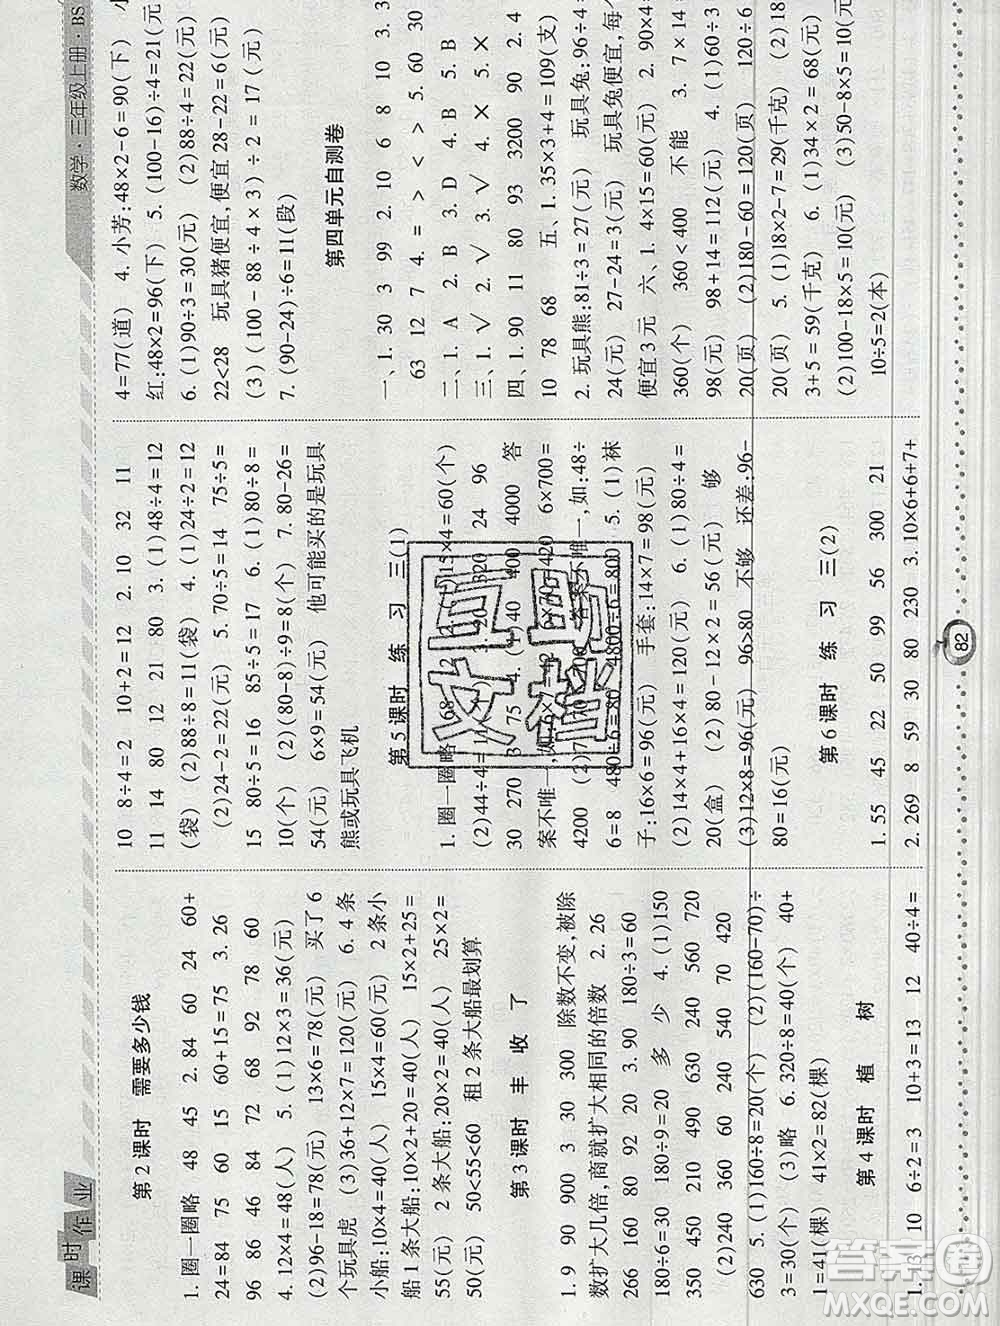 课时作业
数学·三年级上册·BS
第2课时 需要多少钱
1. 圈一圈略 48 45 2. 84 60 24 60+
24=84 75 60 15 60+15=75 3. 26
96 86 46 84 72 68 92 78 60
4. 12×4=48(人) 5. (1)12×3=36(元)
(2)96-18=78(元) 13×6=78(元) 买了6
个玩具虎 (3)36+12×7=120(元) 6. 4条
小船:10×4=40(人) 15×4=60(元) 2条小
船1条大船:10×2+20=40(人) 15×2+25=
55(元) 2条大船:20×2=40(人) 25×2=
50(元) 50<55<60 租2条大船最划算
第3课时 丰收了
1. 9 90 900 3 30 300 除数不变,被除
数扩大几倍,商就扩大相同的倍数 2. 26
266 160 80 92 20 3. 90 180÷3=60
180÷6=30 180÷9=20 多 少 4. (1)150
350 450 210 490 630 240 560 720
(2)240 360 60 240 540 70 420
630 5. (1)160÷8=20(个) (2)(160-70)÷
3=30(个) (3)略 6. 320÷8=40(个) 40+
1=41(棵) 41×2=82(棵)
第4课时 植树
1. 13 10 6÷2=3 10+3=13 12 40÷4=
10 8÷4=2 10+2=12 2. 10 32 11
11 14 80 12 21 80 3. (1)48÷4=12
(袋) (2)88÷8=11(袋) 4. (1)24÷2=12
(2)24-2=22(元) 5. 70÷5=14 75÷5=
15 80÷5=16 85÷5=17 6. (1)80÷8=
10(个) (2)(80-8)÷9=8(个) 7. 80-26=
54(元) 6×9=54(元) 他可能买的是玩具
熊或玩具飞机
第5课时 练习三(1)
1. 圈一圈略 68 2. 15×4=60(个)
(2)44÷4=11 20 320 24 96
30 270 3 75 4. (1)40 400 4000 答
案不唯一,如:6×7=42 6×70=420 6×700=
4200 (2)7 70 700 答案不唯一,如:48÷
6=8 480÷6=80 4800÷6=800 5. (1)袜
子:16×6=96(元) 手套:14×7=98(元)
(2)14×4+16×4=120(元) 6. (1)80÷4=
20(盒) (2)80-12×2=56(元) 够
(3)12×8=96(元) 96>80 不够 还差:96-
80=16(元)
第6课时 练习三(2)
1. 55 45 22 50 99 56 300 21
2. 269 8 59 30 80 230 3. 10×6+6+7+
4=77(道) 4. 小芳:48×2-6=90(下) 小
红:48×2=96(下) 5. (100-16)÷4=21(元)
6. (1)90÷3=30(元) (2)88÷4=22(元)
22<28 玩具猪便宜,便宜28-22=6(元)
(3)(100-88÷4×3)÷2=17(元)
7. (90-24)÷6=11(段)
第四单元自测卷
一、1. 30 3 99 2. 10 6 8 10 3. 3
63 12 7 4. = > < > 5. 60 30
二、1. A 2. B 3. D 4. B 5. B
三、1. √ 2. √ 3. √ 4. × 5. ×
四、1. 90 11 80 93 3200 90 2. 4
10 78 68 五、1. 35×3+4=109(支)
2. 玩具熊:81÷3=27(元) 玩具兔:96÷4=
24(元) 27-24=3(元) 玩具兔便宜,每个
便宜3元 六、1. 4×15=60(元) 2. 90×4=
360(个) 360<400 不能 3. 7×14=
98(元) 98+14=112(元) 4. (1)60÷3=
20(页) (2)180-60=120(页) 120÷6=
20(页) 5. (1)18×2-7=29(千克) (2)18×
3+5=59(千克) 6. (1)34×2=68(元)
(2)100-18×5=10(元) (3)50-8×5=10(元)
10÷5=2(本)
82
答案圈
MXQE.COM